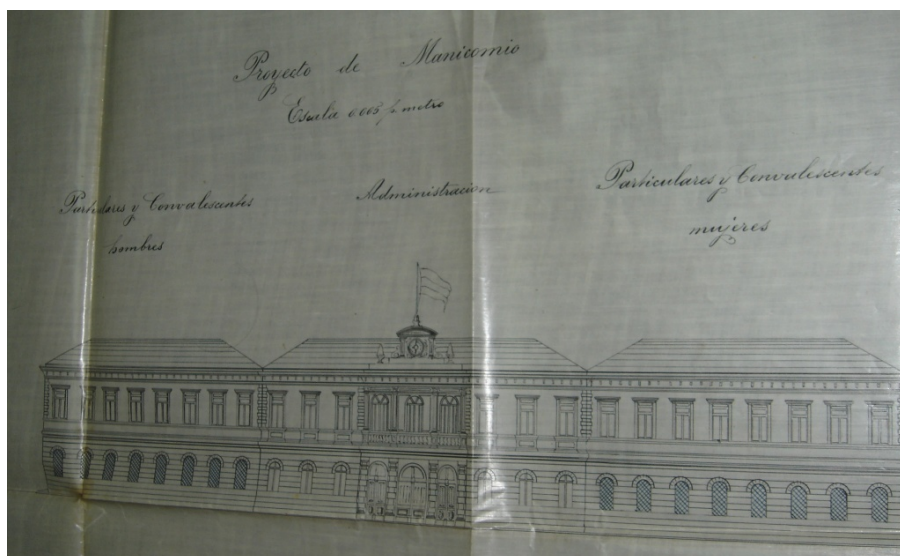 Proyecto de Manicomio
Escala 0.005 p. metro
Particulares y Convalescentes
hombres
Administracion
Particulares y Convalescentes
mujeres